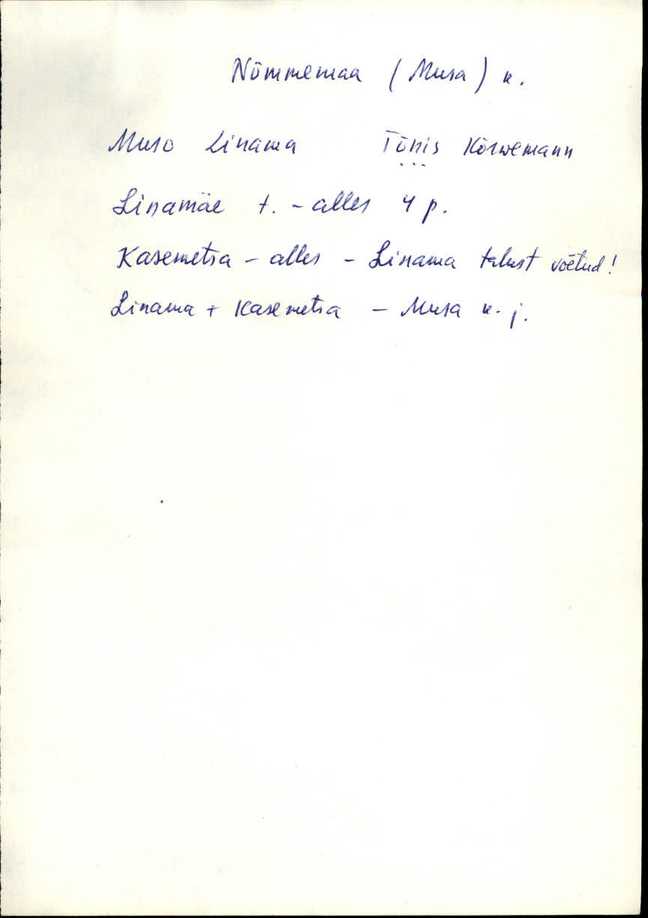 Nõmmemaa (Musa) k.
Muso Linama Tõnis Kõrwemann
Linamäe t. - alles 4 p.
Kasemetsa - alles - Linama talust võetud!
Linama + Kasemetsa - Musa k. j.